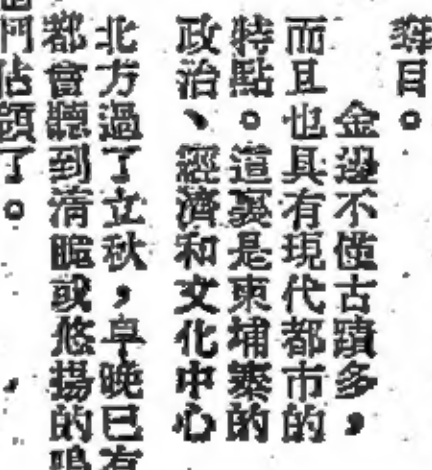 舞目。
金邊不僅古蹟多，
而且也具有現代都市的
特點。這裏是柬埔寨的
政治、經濟和文化中心
北方過了立秋，早晚已有
都會聽到清或悠揚的鳴
們估領了。